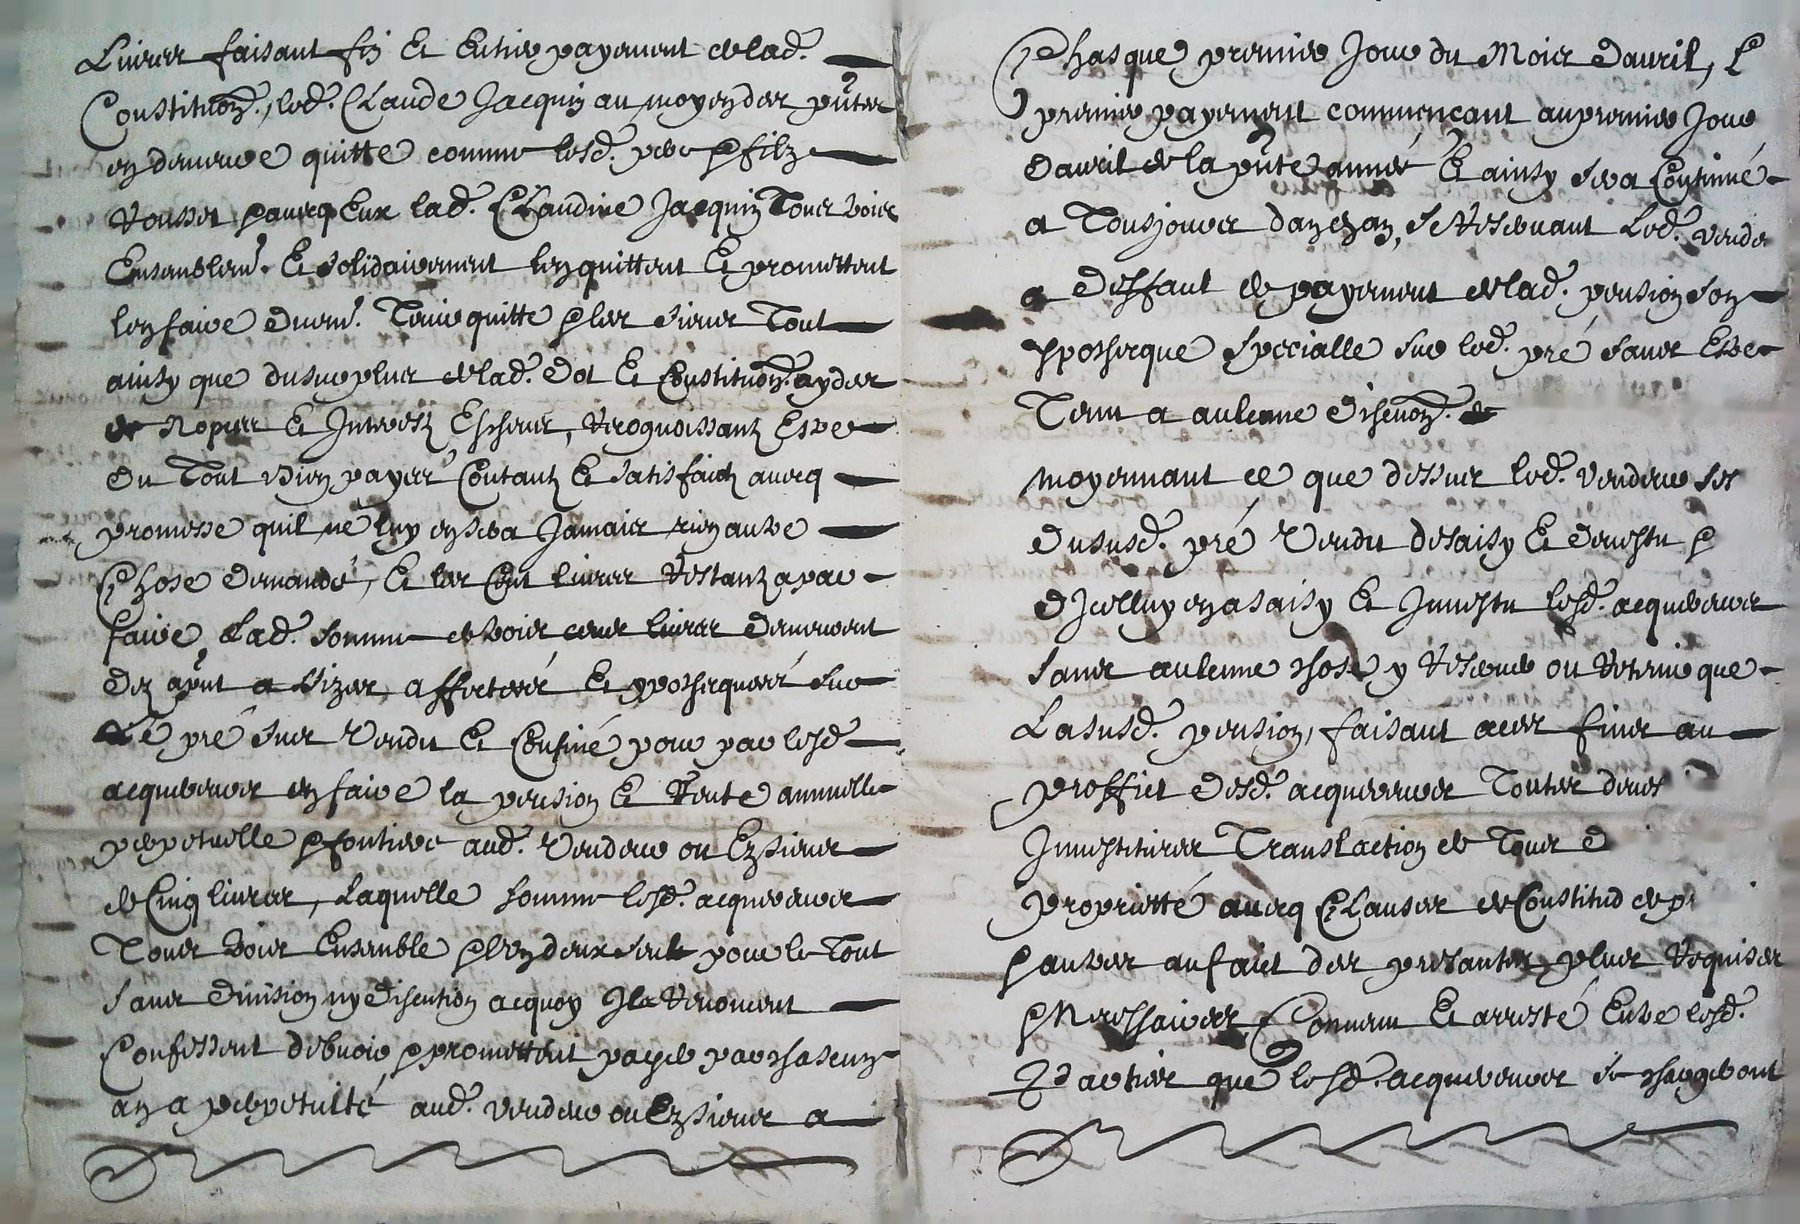 Livres faisant fin et entier payement de lad.
Constituon., led. Claude Jacquin au moyen des pntes
en demeure quitte comme lesd. pere & filz
Rousset & avecq eux lad. Claudine Jacquin tous trois
Ensemblemt. et solidairement len quittent et promettent
len faire duemt. tenir quitte & les siens tout
ainsy que du surplus de lad. dot et constituon. aydes
de Nopces et Interestz escheus, recognoissantz estre
du tout bien payés contantz et satisfaictz avecq
promesse quil ne luy en sera jamais rien autre
chose demandé, et les Cent livres restantz a par
faire lad. somme de trois cens livres demeurent
dez apnt a
Le pré sus vendu et confiné pour par lesd
acquereurs en faire la pension et rente annuelle
perpetuelle & fontiere aud. vendeur ou Ez siens
de Cinq livres, laquelle somme lesd. acquereurs
tous trois ensemble & l'un deux seul pour le tout
sans division ny discution acquoy ils renoncent
Confessent debvoir & promettent payer par chascun
an a perpetuité aud. vendeur ou Ez siens a
Chasque premier Jour du Mois davril, le
premier payement commencant au premier Jour
davril de la pnte année et ainsy sera continué
a tousjours dan en an, se reservant led. vende
a deffaut de payement de lad. pension son
ypothecque specialle sur led. pré sans estre
tenu a aulcune discuon. &
moyennant ce que dessus led. vendeur ses
du susd. pré vendu desaisy et devestu &
dJcelluy en a saisy et Jnvestu lesd. acquereurs
sans aulcune chose y reserver ou retenir que
la susd. pension, faisant a ces fins au
proffict desd. acquereurs toutes deues
Jnvestitures translaction de tous d
proprietté avecq clauses de Constitud de pr
& autres au faict des presantes plus requises
& Necessaires Convenu et arresté entre lesd.
Parties que lesd. acquereurs se chargeront